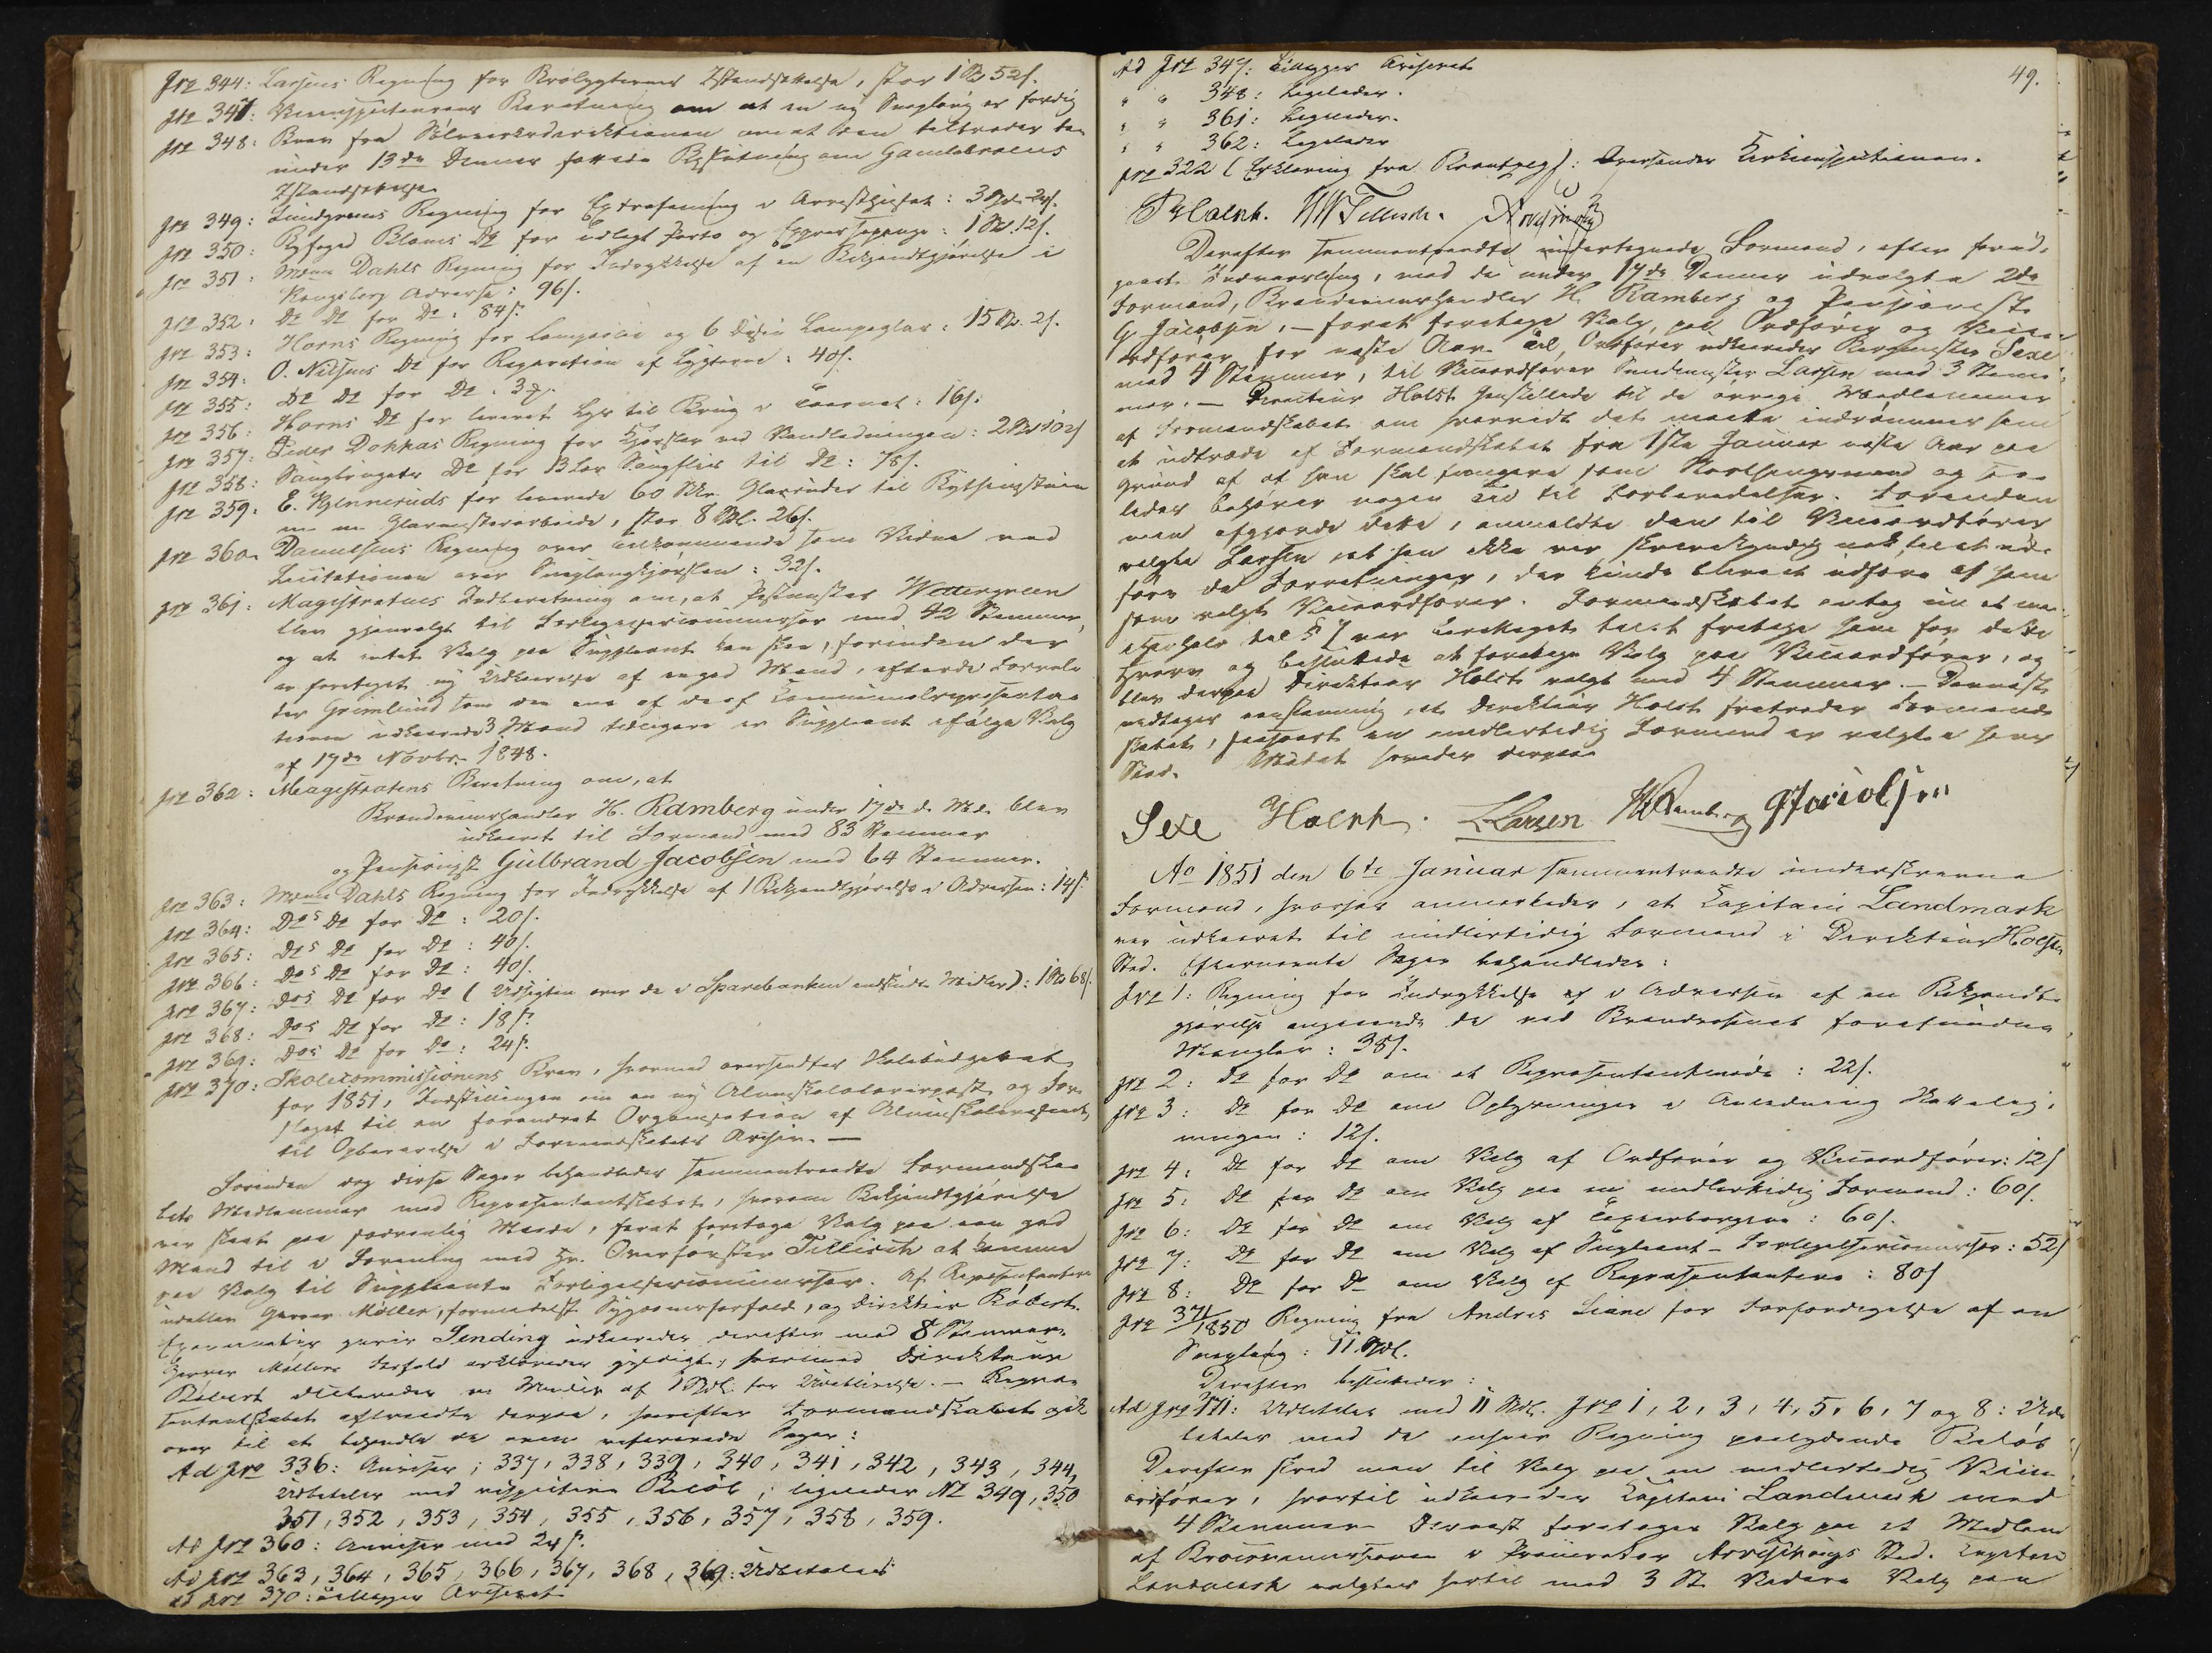 Jrn 344: Larsens Regning for Brolygternes Istandsættelse, stor 1 Sp 52 s.
Jrn 347: Veiinspecteurens Beretning om at en ny Sneploug er færdig
Jrn 348: Brev fra Sølvværksdirektionen om at den tiltræder den
under 13de Dennes fattede Beslutning om Gamlebroens
Istandsættelse
Jrn 349: Lundgreens Regning for Extrafeining i Arresthuset: 3 24 s.
Jrn 350: Byfoged Bloms Do for udlagt Porto og Expressepenge: 1 12 s.
Jrn 351: Mdme Dahls Regning for Indrykkelse af en Bekjendtgjørelse i
Kongsberg Adresse: 96 s.
Jrn 352: Do Do for Do: 84 s.
Jrn 353: Horns Regning for Lampeolie og 6 Dusin Lampeglas: 15 2 s.
Jrn 354: O. Nilsens Do for Reparation af Lygterne: 40 s.
Jrn 355: Do Do for Do.
Jrn 356: Horns Do for leveret Lys til Brug i Taarnet: 16 s.
Jrn 357: Peder Dokkas Regning for Kjørsler ved Vandledningen: 2
Jrn 358: Do for 13 Læs til Do: 78 s.
Jrn 359: E. for leverede 60 Glasruder til
m. m. Glarmesterarbeide, stor 8 Spd. 26 s.
Jrn 360. Danielsens Regning over Tilkommende som Vidne ved
Licitationen over Sneplougkjørslen: 32 s.
Jrn 361: Magistratens Indberetning om, at Postmester
blev gjenvalgt til Forligelsescommissær med 42 Stemmer,
og at intet Valg paa Suppleant kan skee, forinden der
er foretaget ny Udkaarelse af en god Mand, efterdi
Grimlund som den ene af de af Communerepræsenta-
tionen udkaarede 3 Mænd tidligere er Suppleant ifølge Valg
af 17de Novbr. 1848.
Jrn 362: Magistratens Beretning om, at
H. Ramberg under 17de d. Md. blev
udkaaret til Formand med 83 Stemmer
og Gulbrand Jacobsen med 64 Stemmer.
Jrn 363: Mdme Dahls Regning for Indrykkelse af 1 Bekjendtgjørelse i Adressen: 14 s.
Jrn 364: Dos Do for Do: 20 s.
Jrn 365: Dos Do for Do: 40 s.
Jrn 366: Dos Do for Do: 40 s.
Jrn 367: Dos Do for Do (Udsigten over de i Sparebanken indskudte Midler): 1 68 s.
Jrn 368: Dos Do for Do: 18 s.
Jrn 369: Dos Do for Do: 24 s.
Jrn 370: Skolecommissionens Brev, hvormed oversendtes Skolebudgettet
for 1851, Indstillingen om en ny Almueskolelærerpost og For-
slaget til en forandret Organisation af Almueskolevæsenet,
til Opbevarelse i Formandskabets Archiv. —
Forinden dog disse Sager behandledes sammentraadte Formandska-
bets Medlemmer med Repræsentantskabet, hvorom Bekjendtgjørelse
var skeet paa sædvanlig Maade, forat foretage Valg paa een god
Mand til i Forening med Hr. Overførster Tillisch at komme
paa Valg til Suppleant Forligelsescommissær. Af Repræsentanterne
udeblev Garver Møller, formedelst Sygdomsforfald, og Direktør Røbert.
Sending udkaaredes derefter med 8 Stemmer.
Garver Møllers Forfald erklæredes gyldigt, hvorimod Direktør
Røbert ilagdes en Mulct af 1 Spd. for Udeblivelse. — Repræ-
sentantskabet aftraadte derpaa, hvorefter Formandskabet gik
over til at behandle de oven refererede Sager:
Ad Jrn 336: Anvises; 337, 338, 339, 340, 341, 342, 343, 344,
Udbetales med respective Beløb; ligeledes No 349, 350
351, 352, 353, 354, 355, 356, 357, 358, 359.
Ad Jrn 360: Anvises med 24 s.
Ad Jrn 363, 364, 365, 366, 367, 368, 369: Udbetales
Ad Jrn 370: Tillægges Archivet
49.
Ad Jrn 347: Tillægges Archivet
" " 348: Ligeledes.
" " 361: Ligeledes.
" " 362: Ligeledes
Jrn 322 (Erklæring fra ): Oversendes Veiinspectionen.
Holst. Tillisch.
Derefter sammentraadte undertegnede Formænd, efter forud-
gaaet Indvarsling, med de under 17de Dennes udvalgte 2de
Formænd, H. Ramberg og
G Jacobsen, — forat foretage Valg paa Ordfører og Vice-
ordfører for næste Aar. Til Ordfører udkaaredes Sexe
med 4 Stemmer, til Viceordfører Larsen med 3 Stem-
mer. — Directeur Holst henstillede til de øvrige Medlemmer
af Formandskabet om hvorvidt det maatte indrømmes ham
at udtræde af Formandskabet fra 1ste Januar næste Aar paa
Grund af at han skal fungere som Storthingsmand og saa-
ledes behøver nogen Tid til Forberedelser. Forinden
man afgjorde dette, anmeldte den til Viceordfører
valgte Larsen at han ikke var skrivekyndig nok til at ud-
føre de Forretninger, der kunde blive at udføre af ham
som valgt Viceordfører. Formandskabet
§ 7 var berettiget til at fritage ham for dette
Hverv og besluttede at foretage Valg paa Viceordfører, og
blev derpaa Direkteur Holst valgt med 4 Stemmer. — Dernæst
vedtages eenstemmig, at Direkteur Holst fratræder Formand-
skabet, saasnart en midlertidig Formand er valgt i hans
Sted. Mødet hævedes derpaa
Sexe Holst. L Larsen HRamberg GJacobsen
Ao 1851 den 6te Januar sammentraadte underskrevne
Formænd, hvorhos anmærkedes, at Capitain Landmark
var udkaaret til midlertidig Formand i Direkteur Holsts
Sted. Efternævnte Sager behandledes:
Jrn 1: Regning for Indrykkelse i Adressen af en Bekjendt-
gjørelse angaaende de ved Brandvæsenet forefundne
Mangler: 38 s.
Jrn 2: Do for Do om et Repræsentantmøde: 22 s.
Jrn 3: Do for Do om Oplysninger i Anledning Skattelig-
ningen: 12 s.
Jrn 4: Do for Do om Valg af Ordfører og Viceordfører: 12 s
Jrn 5: Do for Do om Valg paa en midlertidig Formand: 60 s.
Jrn 6: Do for Do om Valg af : 60 s.
Jrn 7: Do for Do om Valg af Suppleant-Forligelsescommissær: 52 s
Jrn 8: Do for Do om Valg af Repræsentantere: 80 s
Jrn 371/1850 Regning fra Andres Liane for Forfærdigelse af en
Sneploug: 11 Spd.
Derefter besluttedes:
Ad Jrn 371: Udbetales med 11 Spd. Jrn 1, 2, 3, 4, 5, 6, 7 og 8: Udbe-
tales med de enhver Regning paalydende Beløb
Derefter skred man til Valg paa en midlertidig Vice-
ordfører, hvortil udkaaredes Capitain Landmark med
4 Stemmer. Dernæst foretoges Valg paa et Medlem
af i Sted. Capitain
Landmark valgtes hertil med 3 St. Videre Valg paa